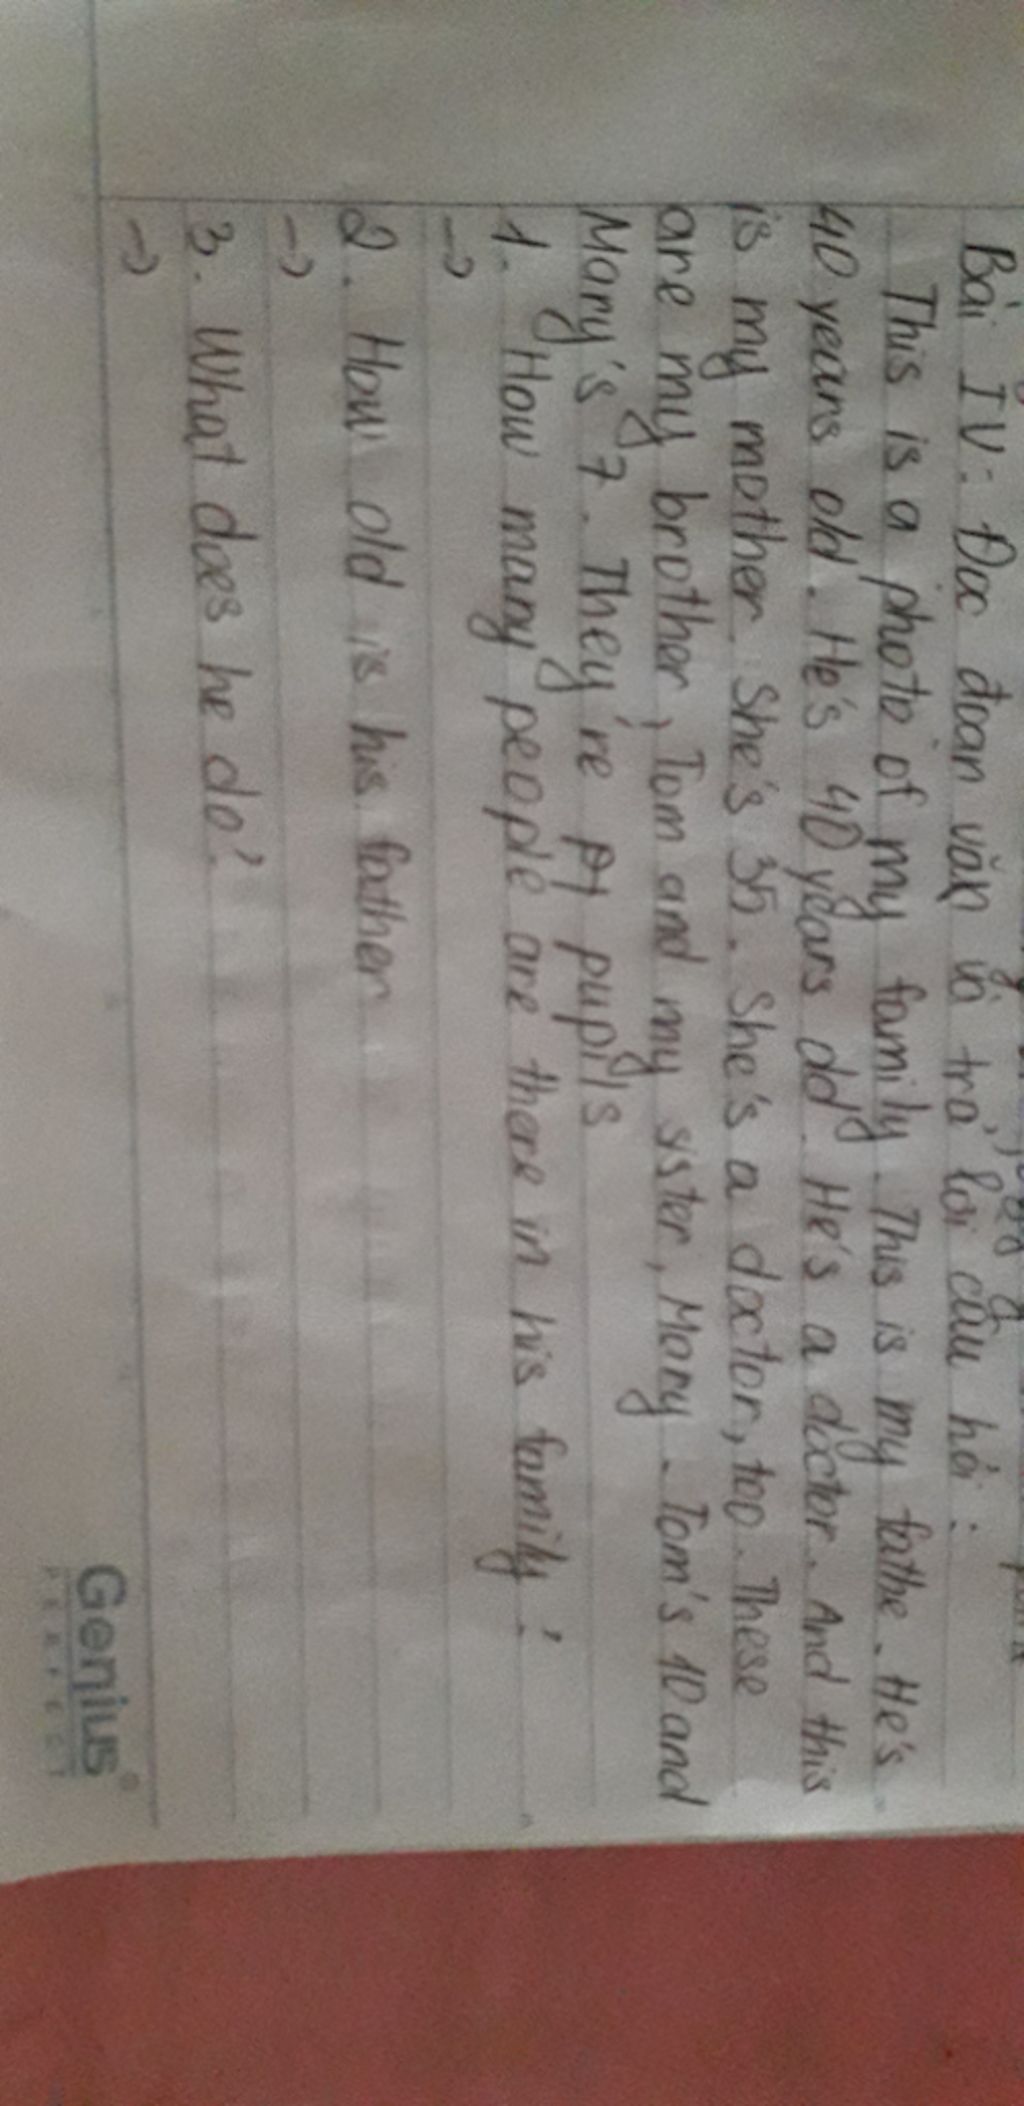 Bài IV: Đọc đoạn văn và trả lời câu hỏi:
This is a photo of my family. This is my fathe. He's
40 years old. He's 40 years old. He's a doctor. And this
is my mother. She's 35. She's a doctor, too. These
are my brother, Tom and my sister, Mary. Tom's 10 and
Mary's 7. They're pupils
1. How many people are there in his family?
→
2. How old is his father
→
3. What does he do?
→
Genius
PERFECT